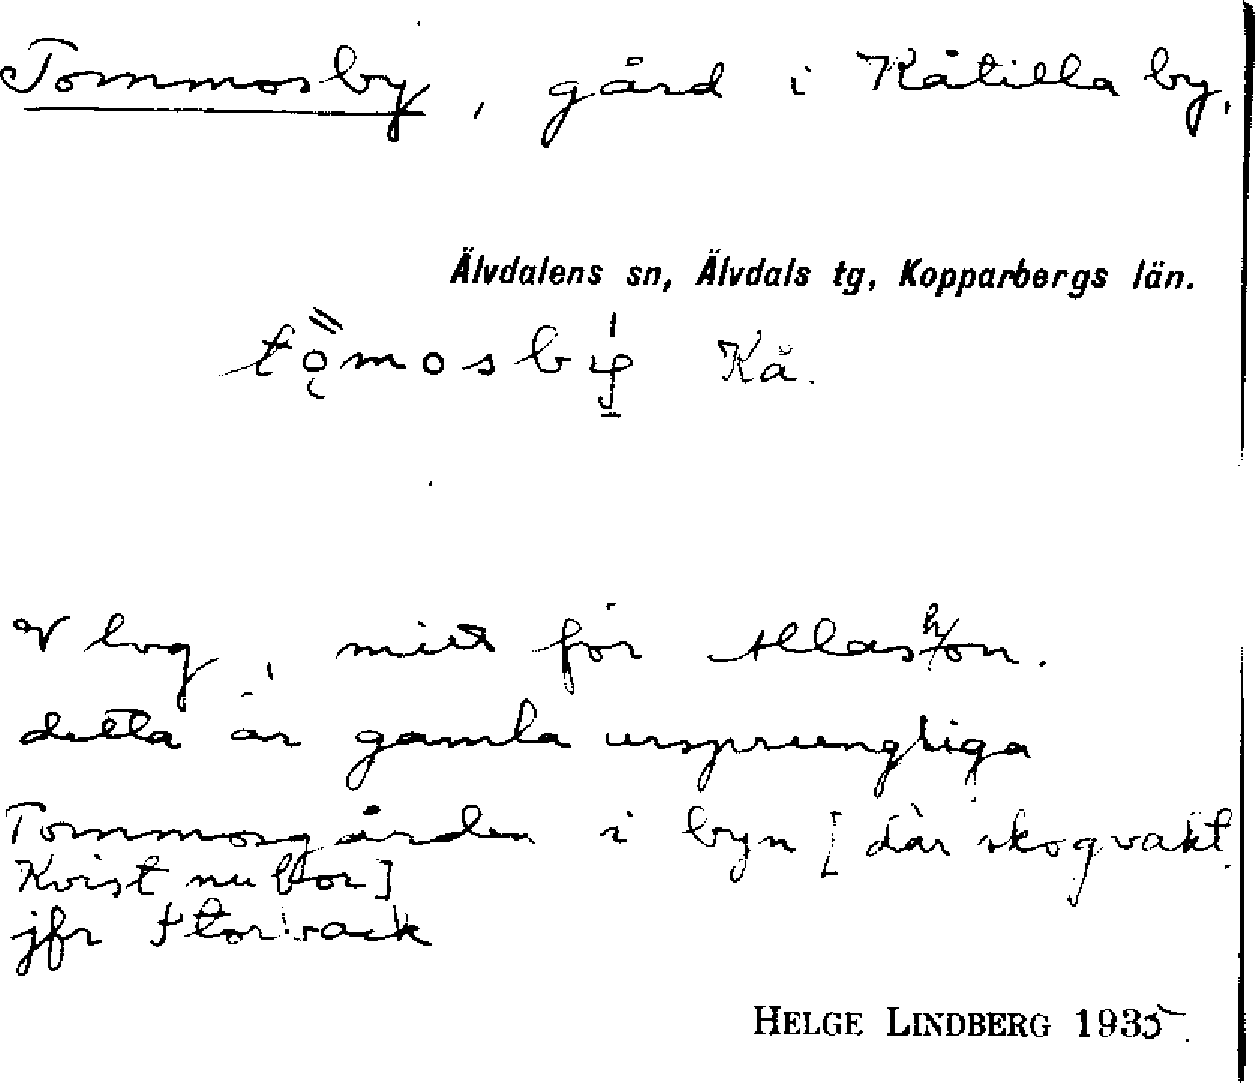 Tommosby, gård i Kåtilla by,
Älvdalens sn, Älvdals tg, Kopparbergs län.
tǫ̋mosbÿ Kå.
V log, mitt för
detta är gamla ursprungliga
Tommosgården i byn [där skogvakt.
Kvist nu bor]
jfr
HELGE LINDBERG 1935.